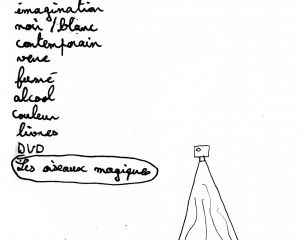 imagination
noir / blanc
contemporain
verre
fumé
alcool
couleur
livres
DVD
Les oiseaux magiques